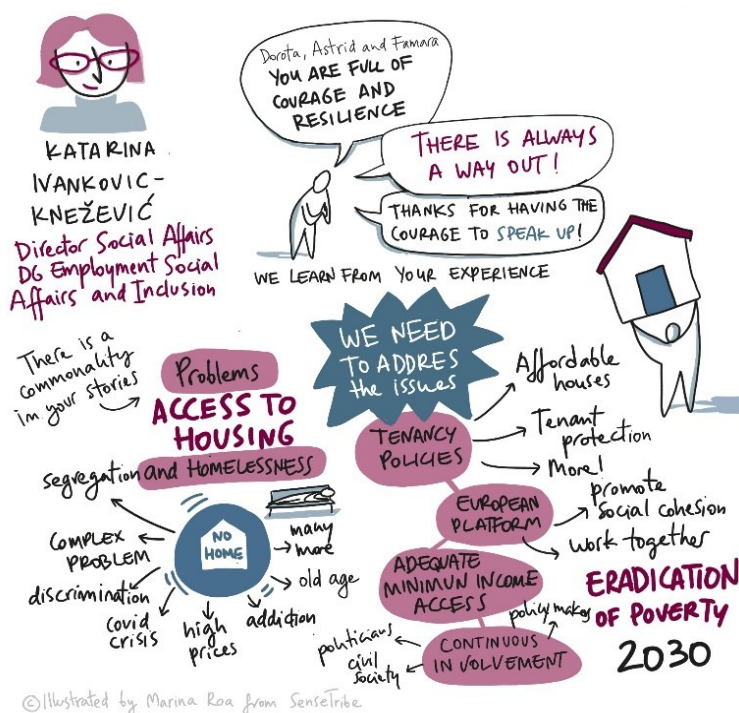 KATARINA
IVANKOVIC-
KNEŽEVIĆ
Director Social Affairs
DG Employment Social
Affairs and Inclusion
Dorota, Astrid and Famara
YOU ARE FULL OF
COURAGE AND
RESILIENCE
THERE IS ALWAYS
A WAY OUT!
THANKS FOR HAVING THE
COURAGE TO SPEAK UP!
WE LEARN FROM YOUR EXPERIENCE
There is a
commonality
in your stories
Problems
ACCESS TO
HOUSING
and HOMELESSNESS
segregation
COMPLEX
PROBLEM
discrimination
covid
crisis
high
prices
addiction
old age
many
more
NO
HOME
WE NEED
TO ADDRES
the issues
TENANCY
POLICIES
Affordable
houses
Tenant
protection
More!
EUROPEAN
PLATFORM
promote
social cohesion
work together
ADEQUATE
MINIMUN INCOME
ACCESS
CONTINUOUS
INVOLVEMENT
politicians
civil
society
policy makes
ERADICATION
OF POVERTY
2030
©Illustrated by Marina Roa from SenseTribe